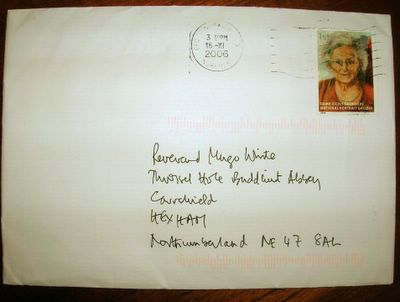 3 PM
15-XI
2006
1st
DAME CICELY SAUNDERS
NATIONAL PORTRAIT GALLERY
Reverend Mugo White
Throssel Hole Buddhist Abbey
Carrshield
HEXHAM
Northumberland NE 47 8AL